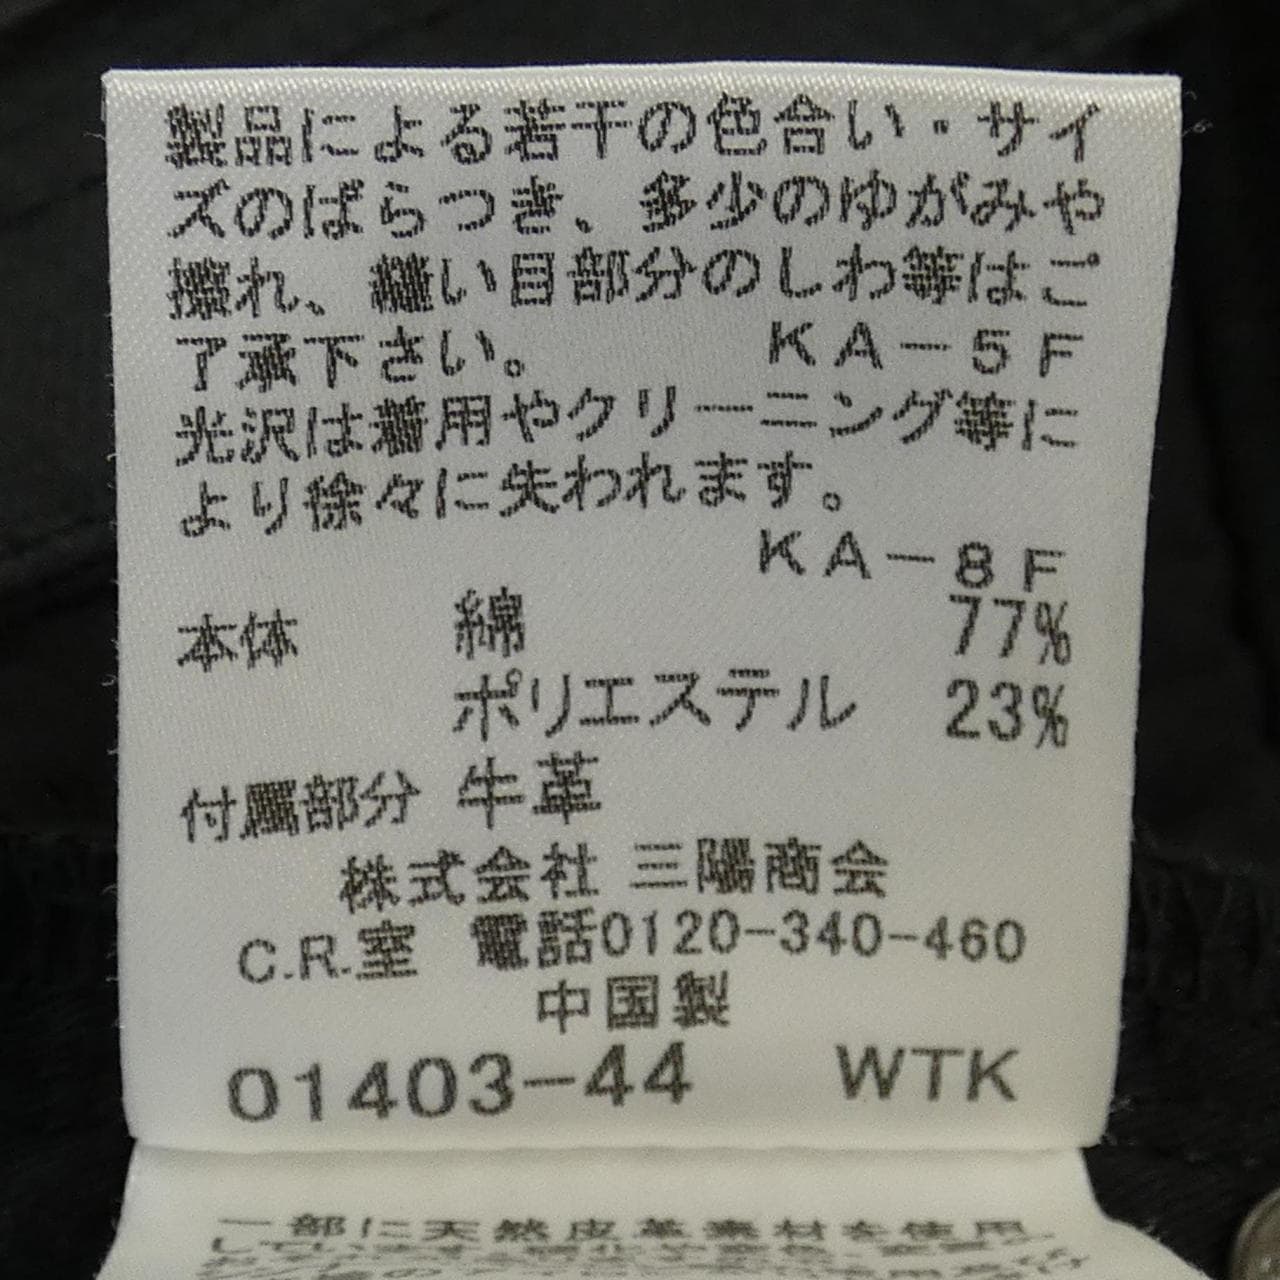 製品による若干の色合い・サイ
ズのばらつき、多少のゆがみや
擦れ、縫い目部分のしわ等はご
了承下さい。 KA-5F
光沢は着用やクリーニング等に
より徐々に失われます。
KA-8F
本体 綿 77%
ポリエステル 23%
付属部分 牛革
株式会社 三陽商会
C.R.室 電話0120-340-460
中国製
01403-44 WTK
一部に天然皮革素材を使用